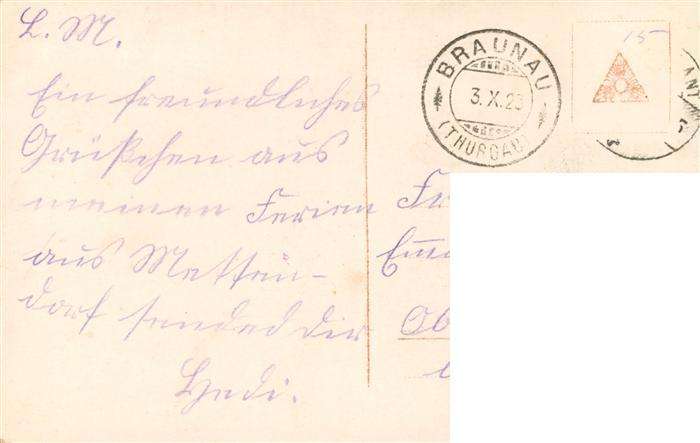 L. M.
Ein freundliches
Grüßchen aus
meinen Ferien
aus Metten-
dorf sended dir
Hedi.
BRAUNAU
3.X.23
(THURGAU)
15
Fr
Emm
Ob